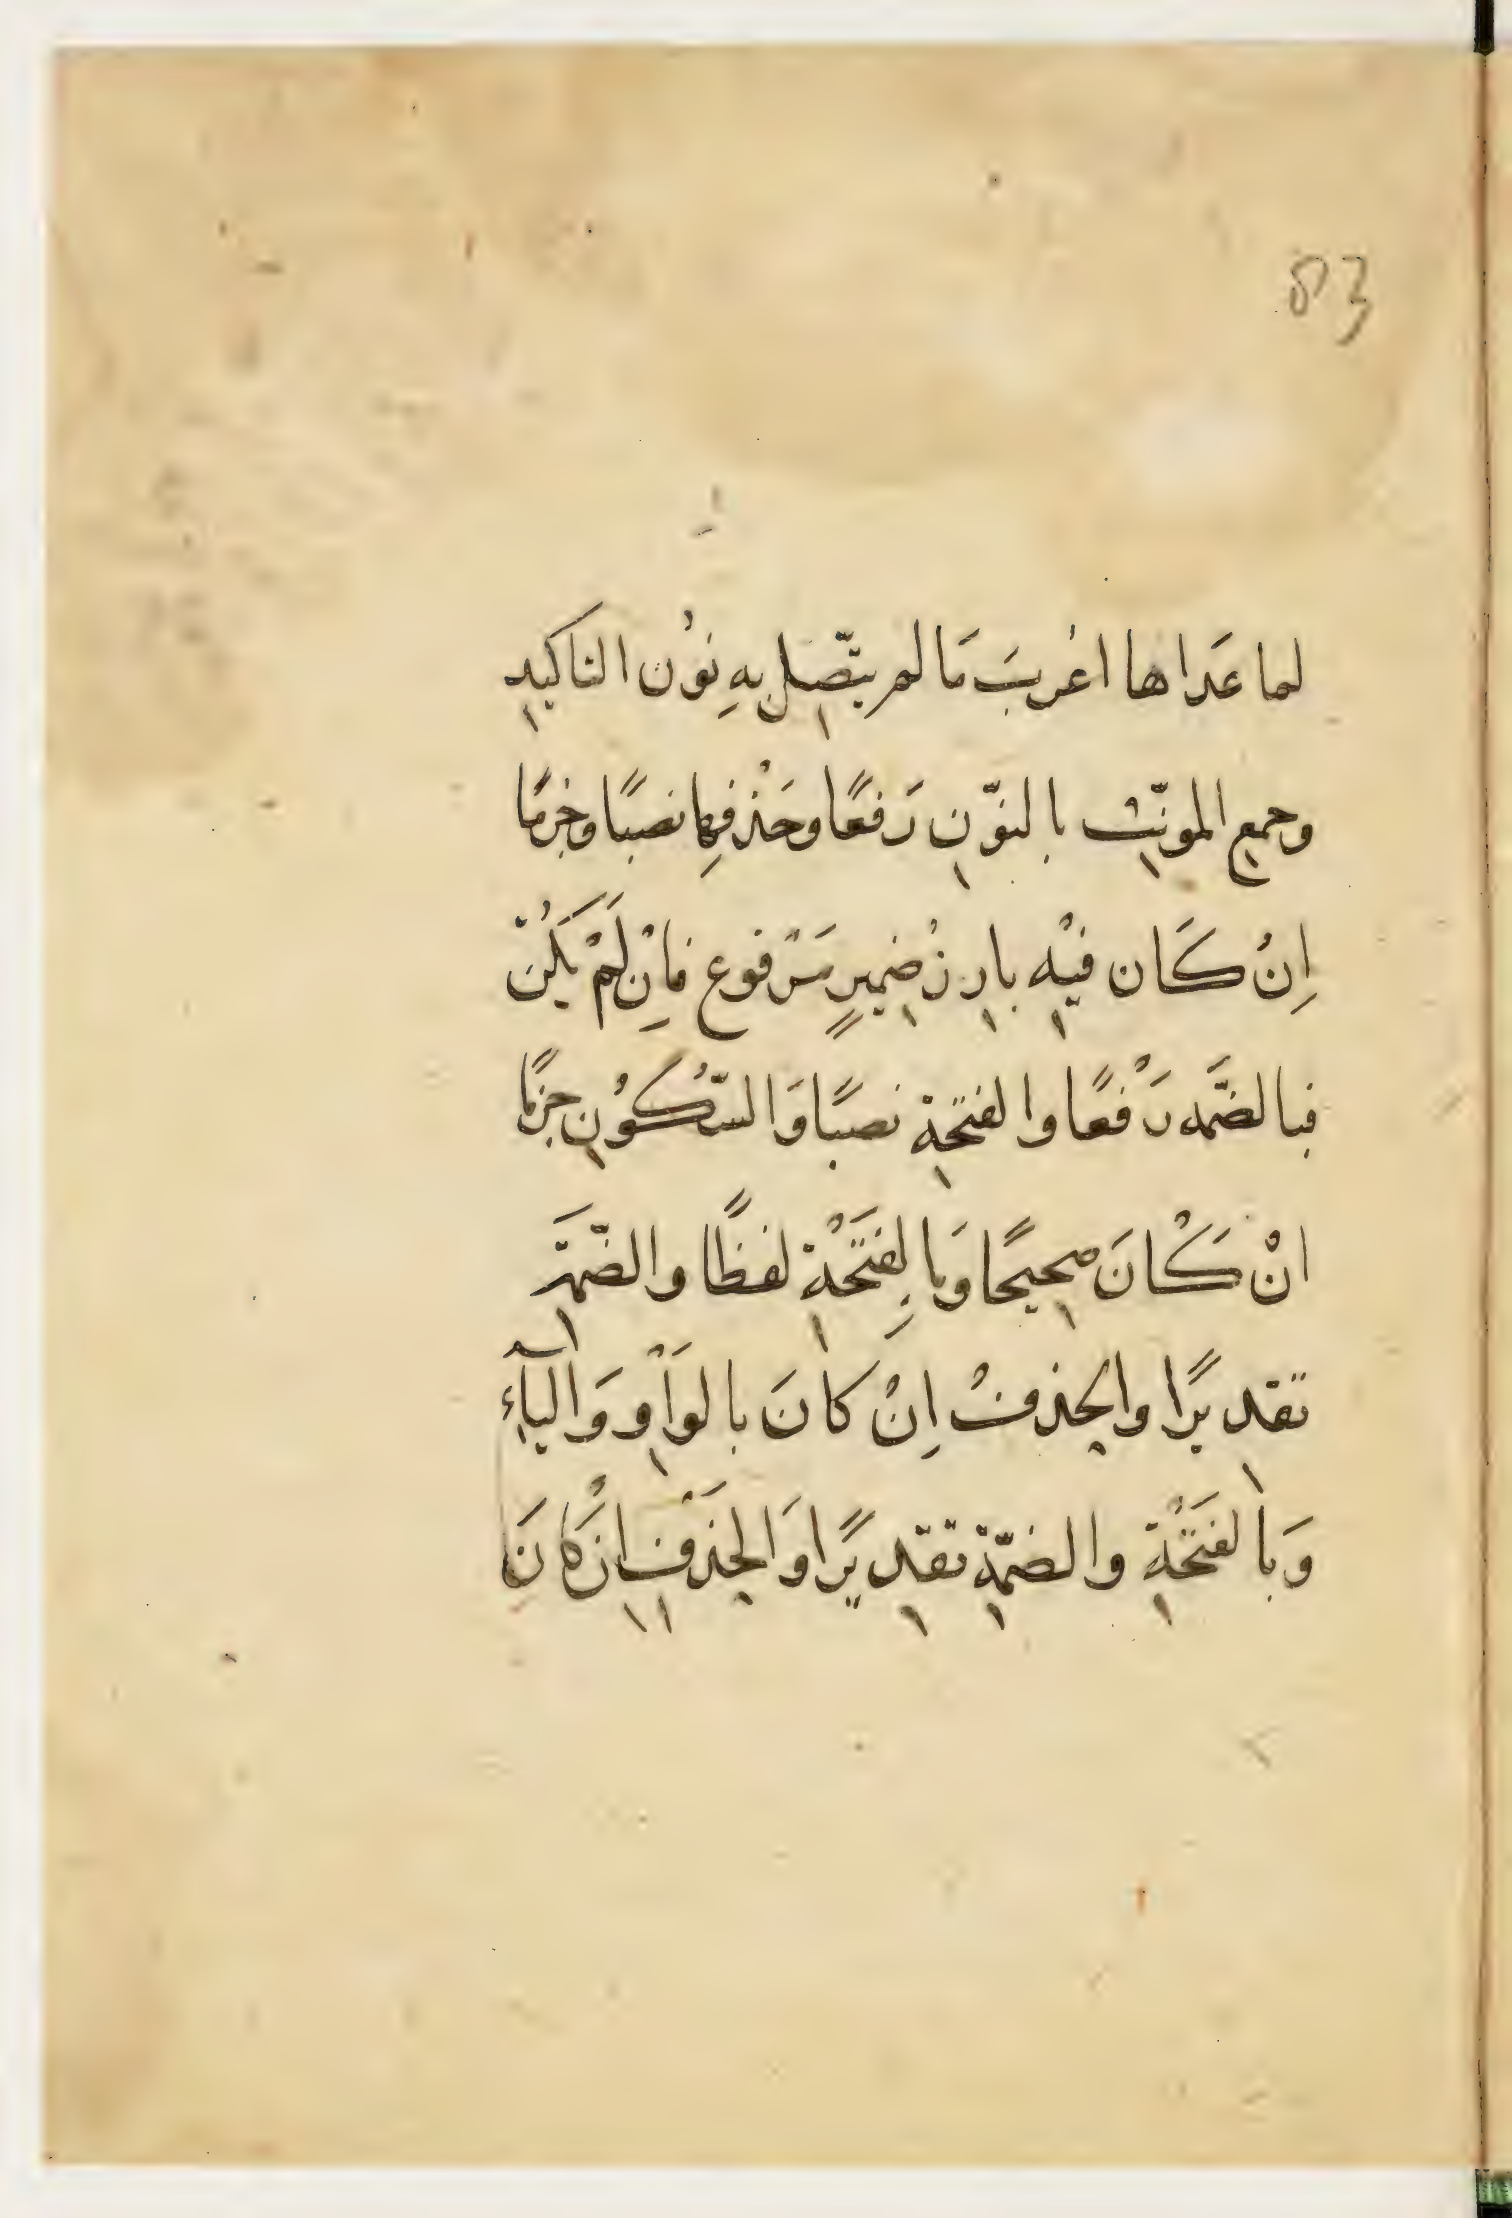 83
لما عَداها اعُربَ مَا لم يتّصِل بِهِ نوُن التاكيدِ
وجمعِ المونّثِ بالنوّنِ رَفعًا وحَذْفِها نصبًا وجزمًا
اِنْ كَان فيْهِ بارِزُ ضميرٍ مَرْفوع فاِنْ لَمْ يَكُنْ
فبالضَّمه رَفْعًا والفتحةِ نصبًا وَالسّكُوُنِ جزمًا
انْ كَانَ صحيحًا وَبالِفَتْحَةِ لفظًا والضّمَّةِ
تقديرًا والحِذفُ اِنْ كانَ بالوَاوِ وَاليآءِ
وَبالفَتْحَةِ والضمّةِ تقديرًا وَالحِذَفِ اِنْ كَانَ